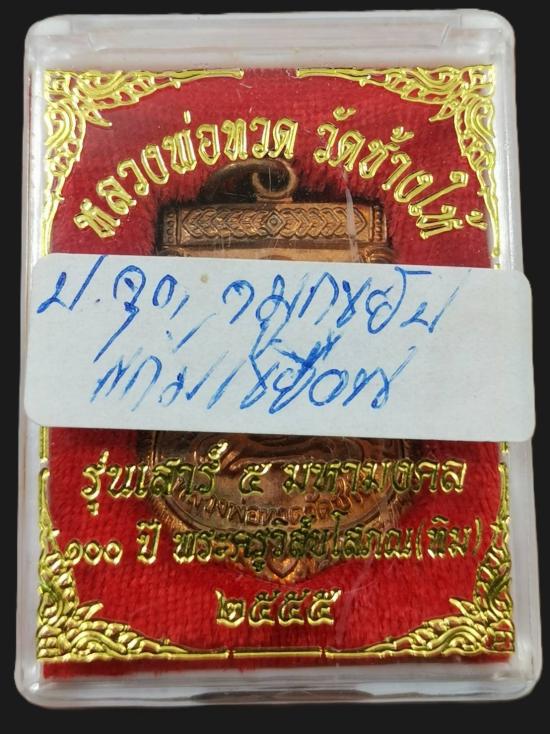 หลวงพ่อทวด วัดช้างให้
ป. จุด, จมูกขยับ
แก้มเขยื้อน
รุ่นเสาร์ ๕ มหามงคล
๑๐๐ ปี พระครูวิสัยโสภณ(ทิม)
๒๕๕๕